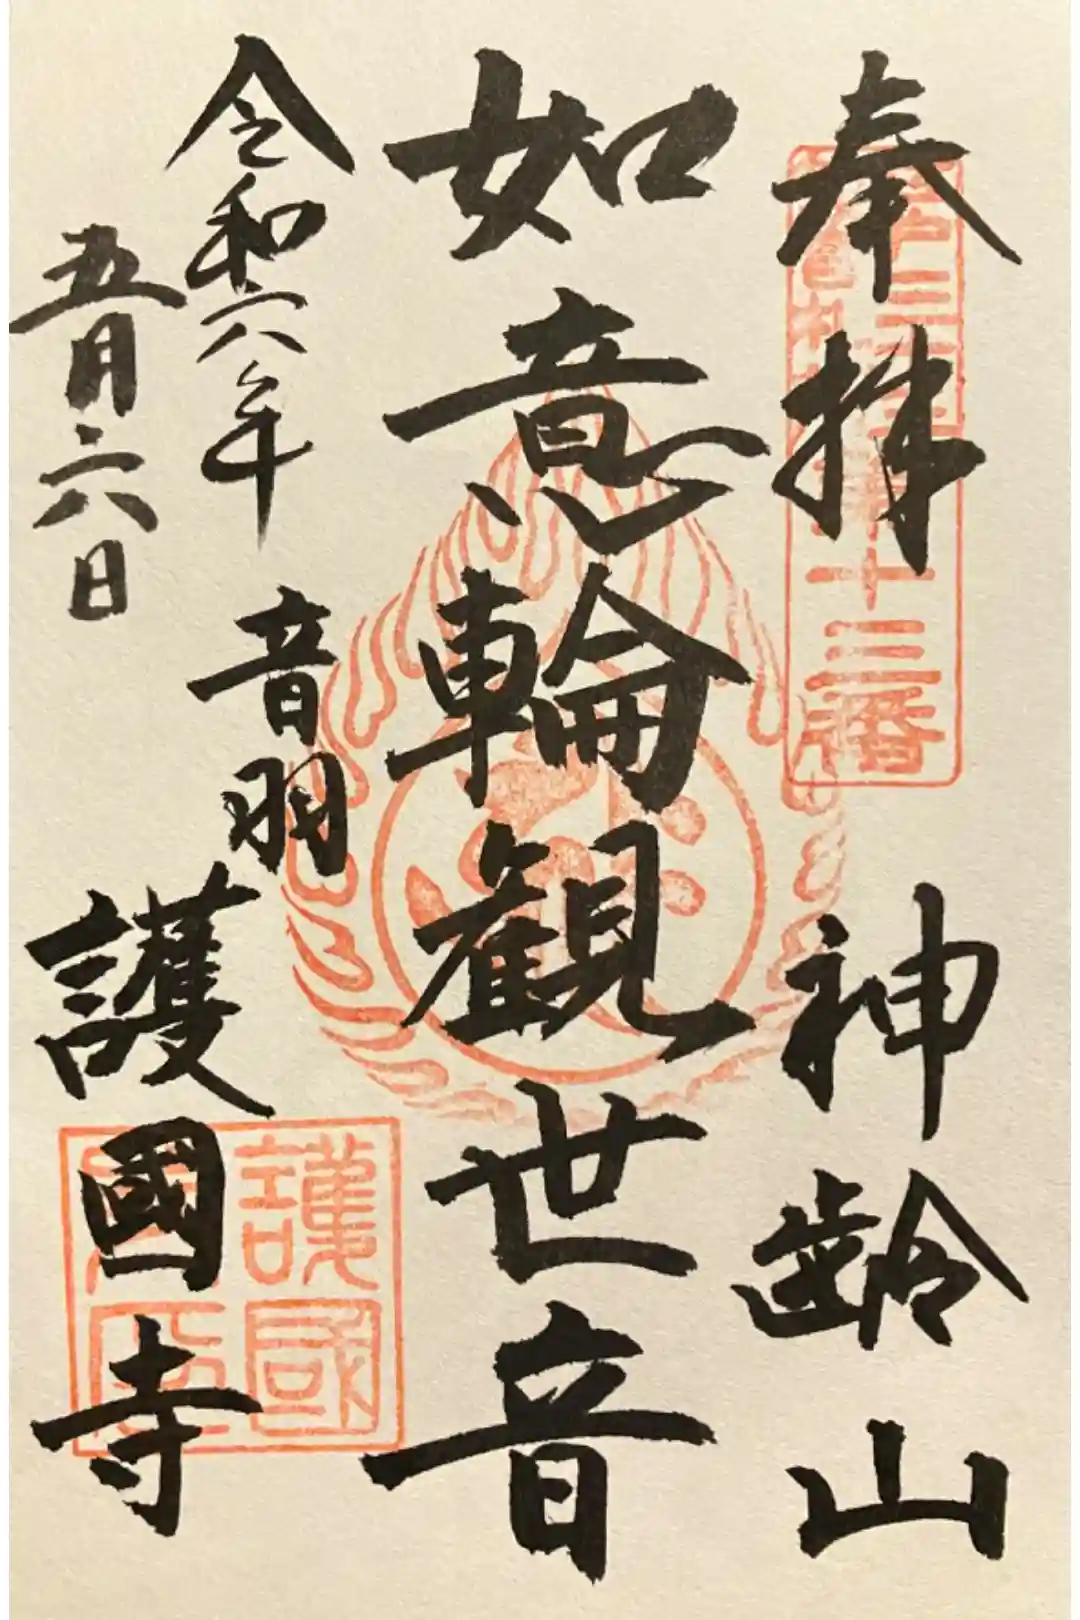 奉拝
神齢山
如意輪観世音
令和六年
五月六日
音羽
護國寺
十三番
護國